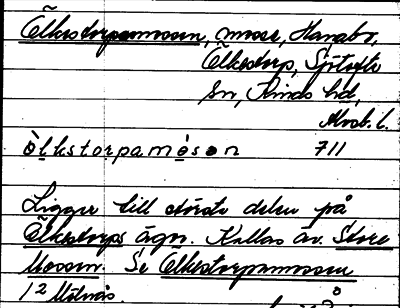 Ölkestorpamossen, mosse, Hanabo,
Ölkestorp, Sjötofta
sn, Kinds hd,
Älvsb. l.
ò̤lkstorpamò̤sən 711
Ligger till största delen på
Ölkestorps ägor. Kallas äv. Store
Mossen. Se Ölkestorpamossen
12 Mölnås.